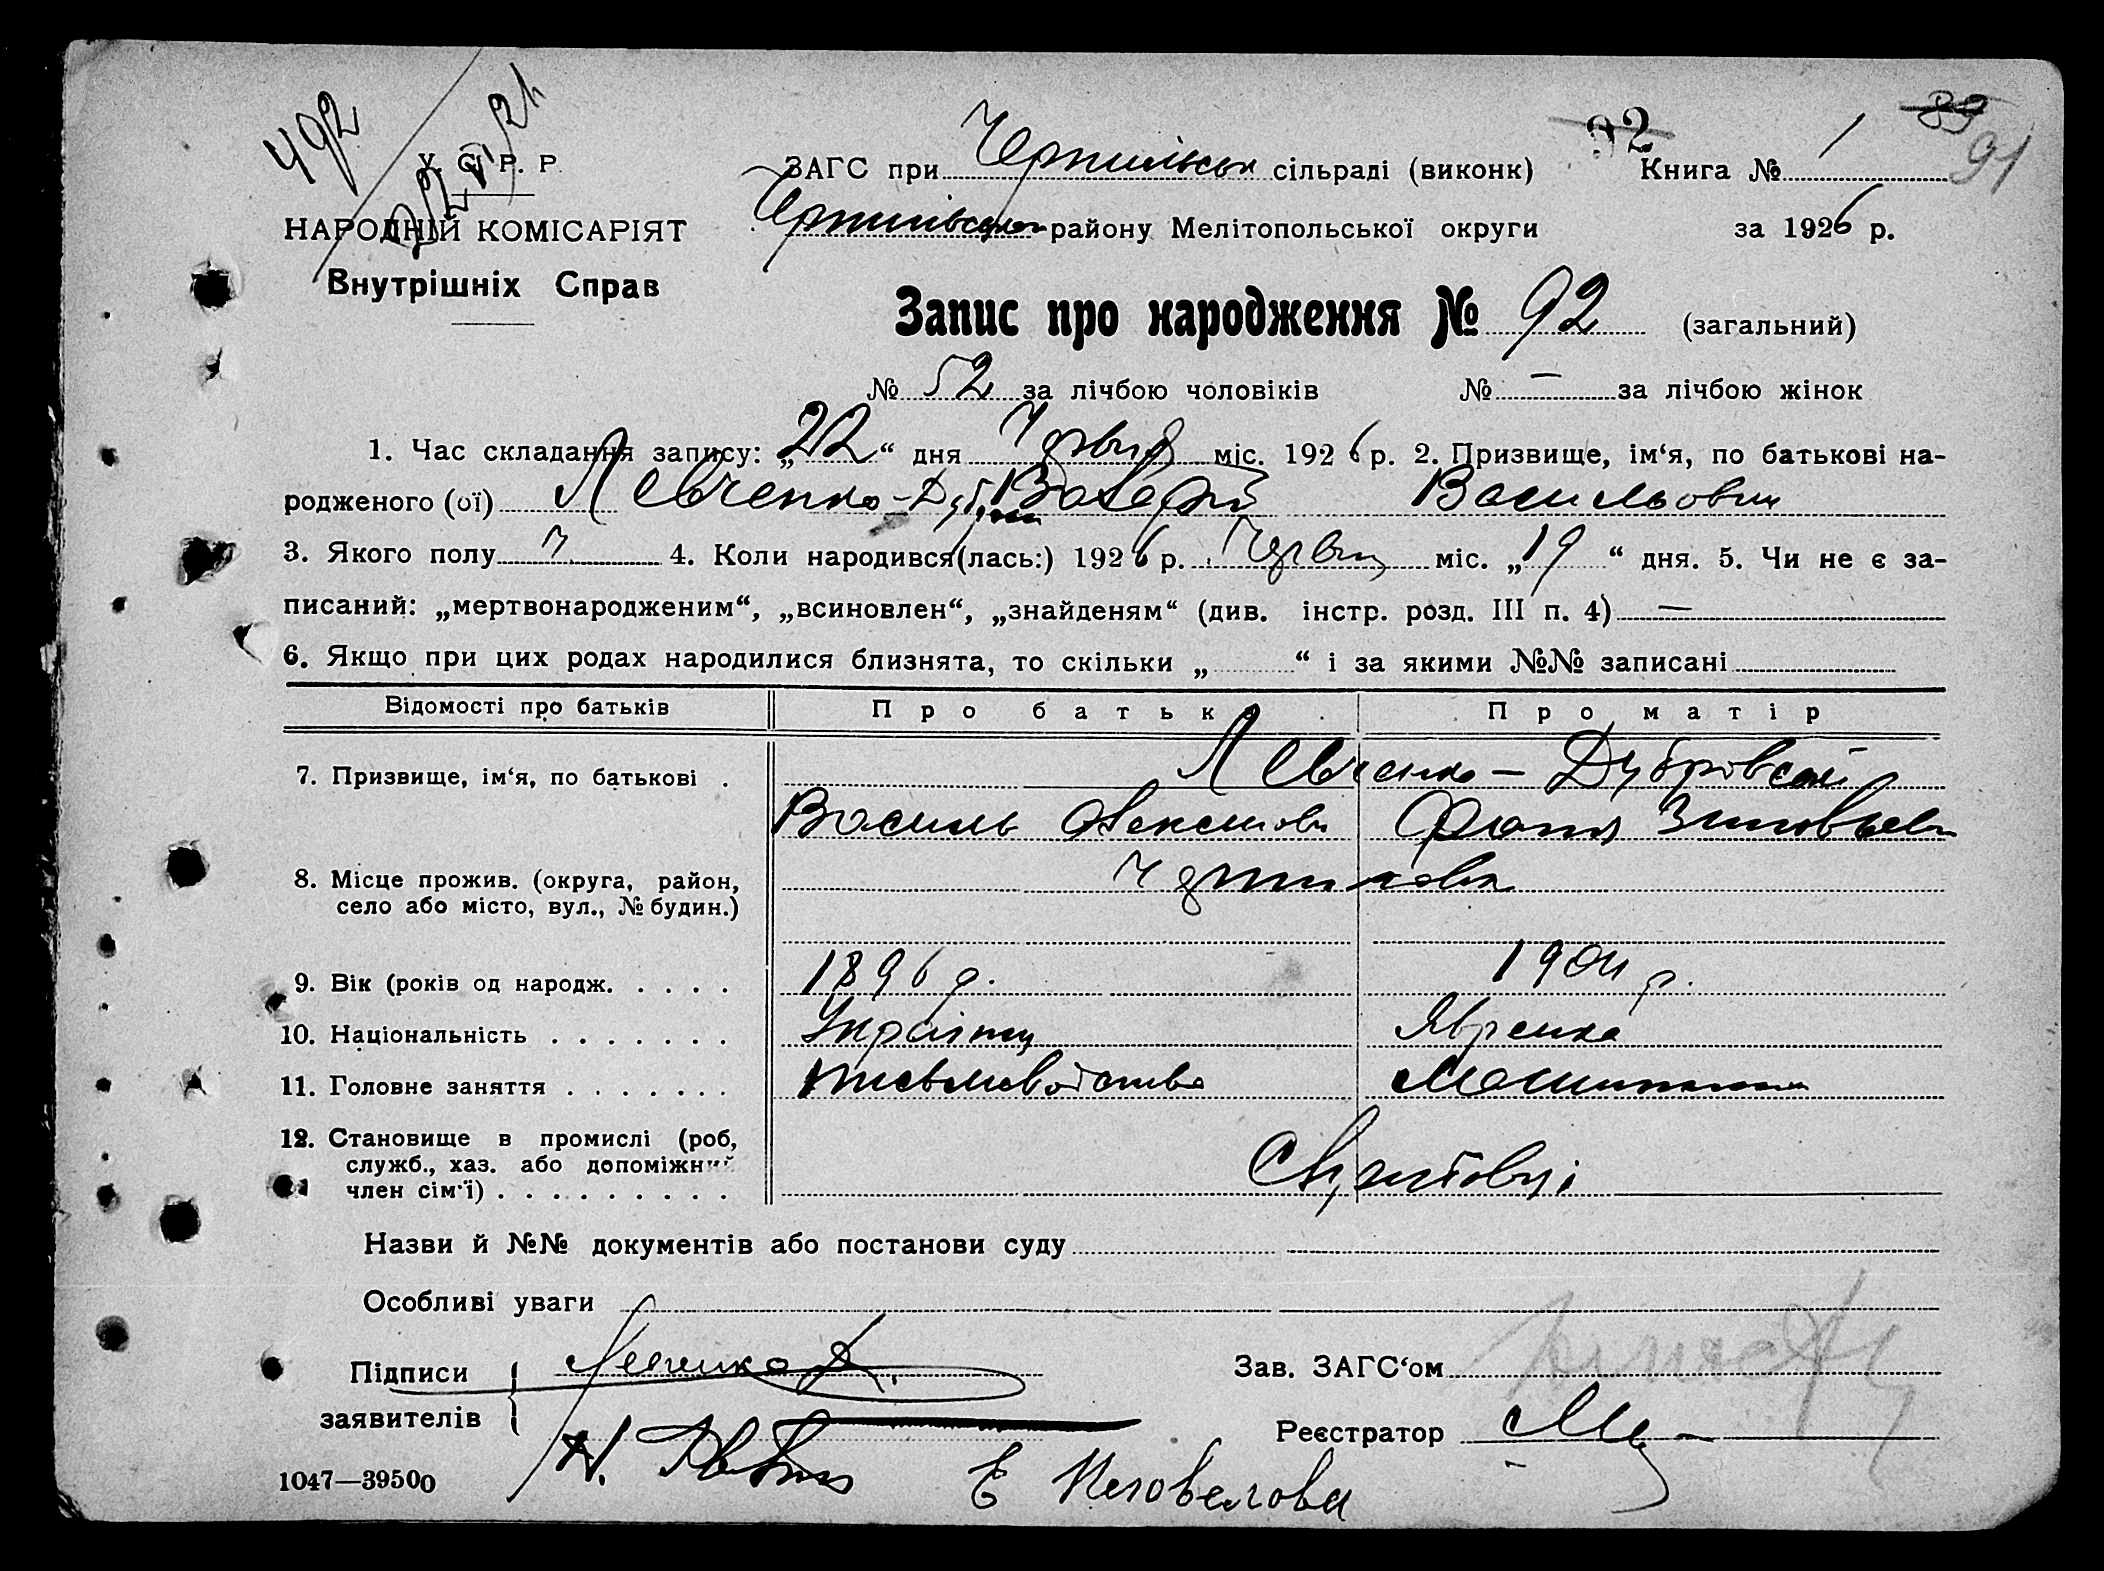 492
У. С. Р. Р.
НАРОДНІЙ КОМІСАРІЯТ
Внутрішніх Справ
92 89 91
ЗАГС при сільраді (виконк) Книга № 1
району Мелітопольської округи за 1926 р.
Запис про народження № 92 (загальний)
№ 52 за лічбою чоловіків № — за лічбою жінок
1. Час складання запису: „22“ дня міс. 1926 р. 2. Призвище, ім‘я, по батькові на-
родженого (ої) Левченко-Валерій Васильович
3. Якого полу Ч 4. Коли народився(лась:) 1926 р. Червец міс. „19“ дня. 5. Чи не є за-
писаний: „мертвонародженим“, „всиновлен“, „знайденям“ (див. інстр. розд. III п. 4) —
6. Якщо при цих родах народилися близнята, то скільки „ “ і за якими №№ записані
Відомості про батьків Про батька Про матір
7. Призвище, ім‘я, по батькові . Левченко – Дубровской
Василь
8. Місце прожив. (округа, район,
село або місто, вул., № будин.)
9. Вік (років од народж. . . . . 1896 р. 1904 р.
10. Національність . . . . . . . Українец Явренка
11. Головне заняття . . . . . . . письмоводство
12. Становище в промислі (роб,
служб., хаз. або допоміжний
член сім‘ї) . . . . . . . . .
Назви й №№ документів або постанови суду
Особливі уваги
Підписи Левченко Д. Зав. ЗАГС‘ом
заявителів Реєстратор
1047—39500